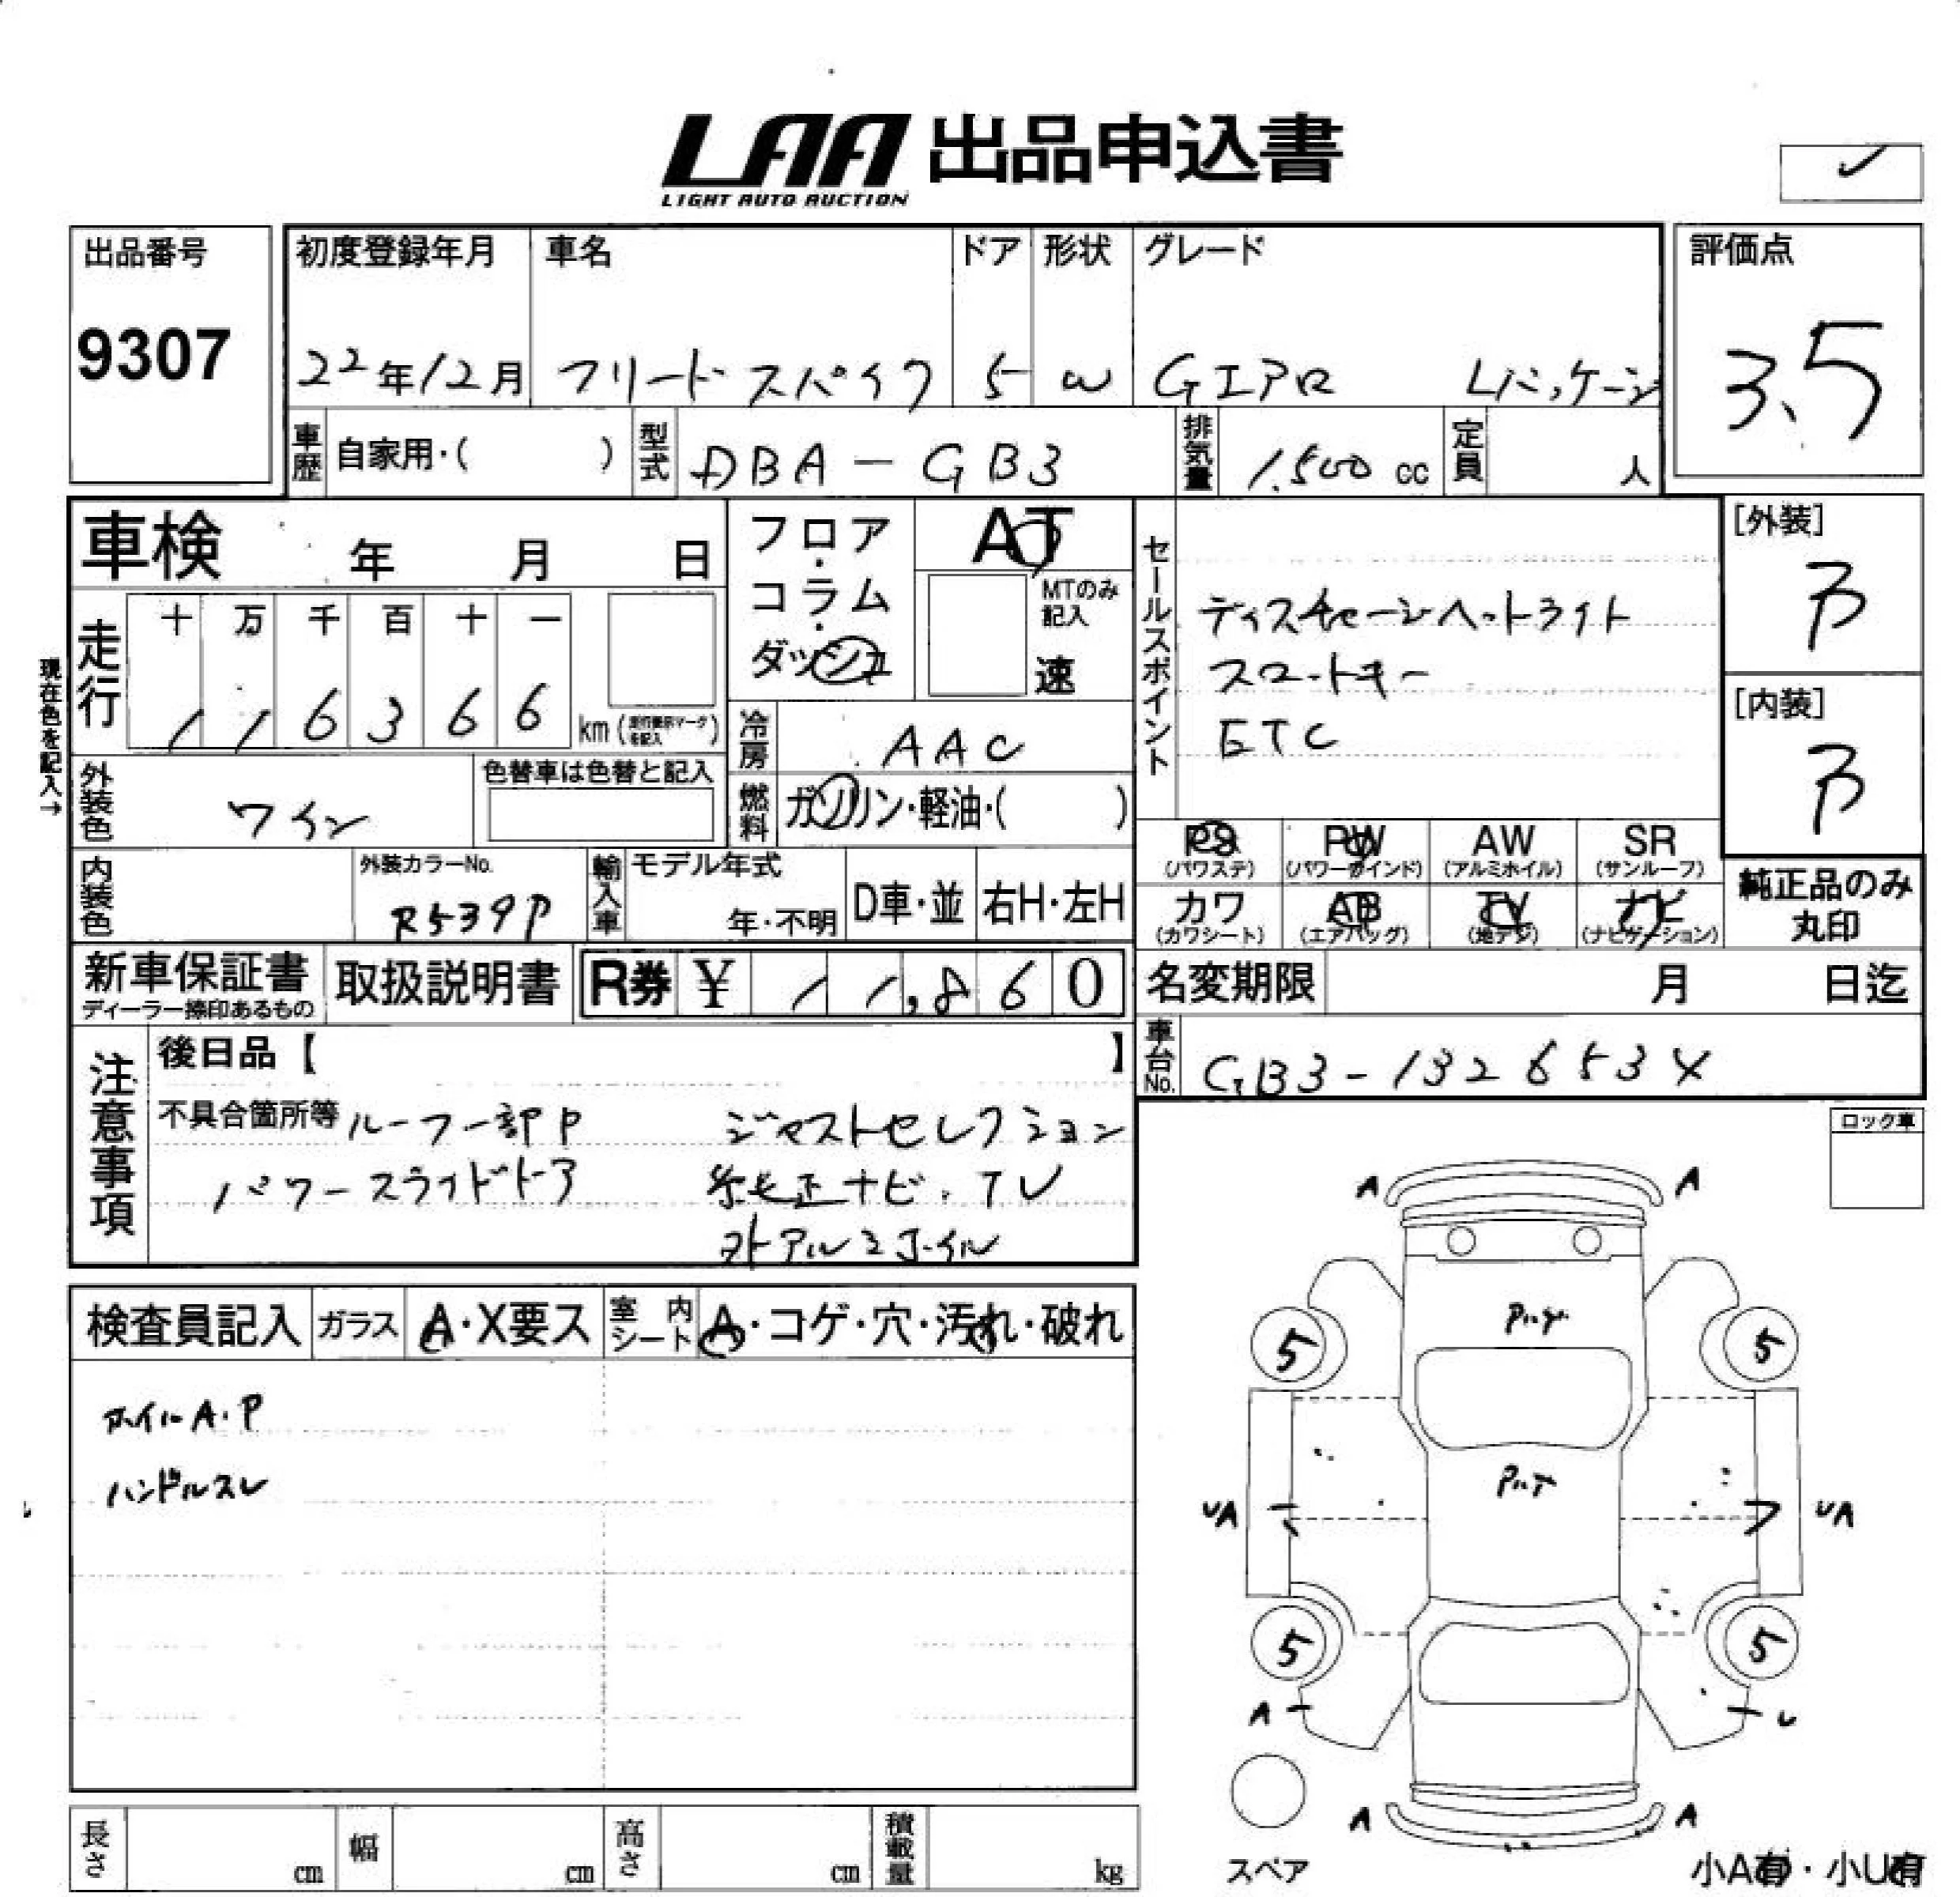 LAA 出品申込書
LIGHT AUTO AUCTION
出品番号
9307
初度登録年月
22年12月
車名
フリードスパイク
ドア
5
形状
W
グレード
Gエアロ Lパッケージ
評価点
3.5
車歴 自家用・( )
型式 DBA-GB3
排気量 1,500 cc
定員 人
車検 年 月 日
フロア・コラム・ダッシュ
AT
MTのみ記入
速
セールスポイント
ディスチャージヘットライト
スマートキー
ETC
[外装]
B
[内装]
B
現在色を記入→
走行
十 万 千 百 十 一
1 1 6 3 6 6
km (走行表示マークを記入)
冷房 AAC
外装色 ワイン
色替車は色替と記入
燃料 ガソリン・軽油・( )
PS (パワステ)
PW (パワーウインド)
AW (アルミホイル)
SR (サンルーフ)
カワ (カワシート)
AB (エアバッグ)
TV (地デジ)
ナビ (ナビゲーション)
純正品のみ
丸印
内装色
外装カラーNo.
R539P
輸入車
モデル年式
年・不明
D車・並
右H・左H
新車保証書
ディーラー捺印あるもの
取扱説明書
R券 ¥ 11,860
名変期限 月 日迄
車台No. GB3-1326853X
注意事項
後日品【 】
不具合箇所等 ルーフ一部P ジャストセレクション
パワースライドドア 純正ナビ、TV
外アルミホイル
ロック車
検査員記入
ガラス A・X要ス
室内シート A・コゲ・穴・汚れ・破れ
ホイルA.P
ハンドルスレ
A A
5 5
UA UA
5 5
A U
A A
スペア
小A有・小U有
長さ cm
幅 cm
高さ cm
積載量 kg